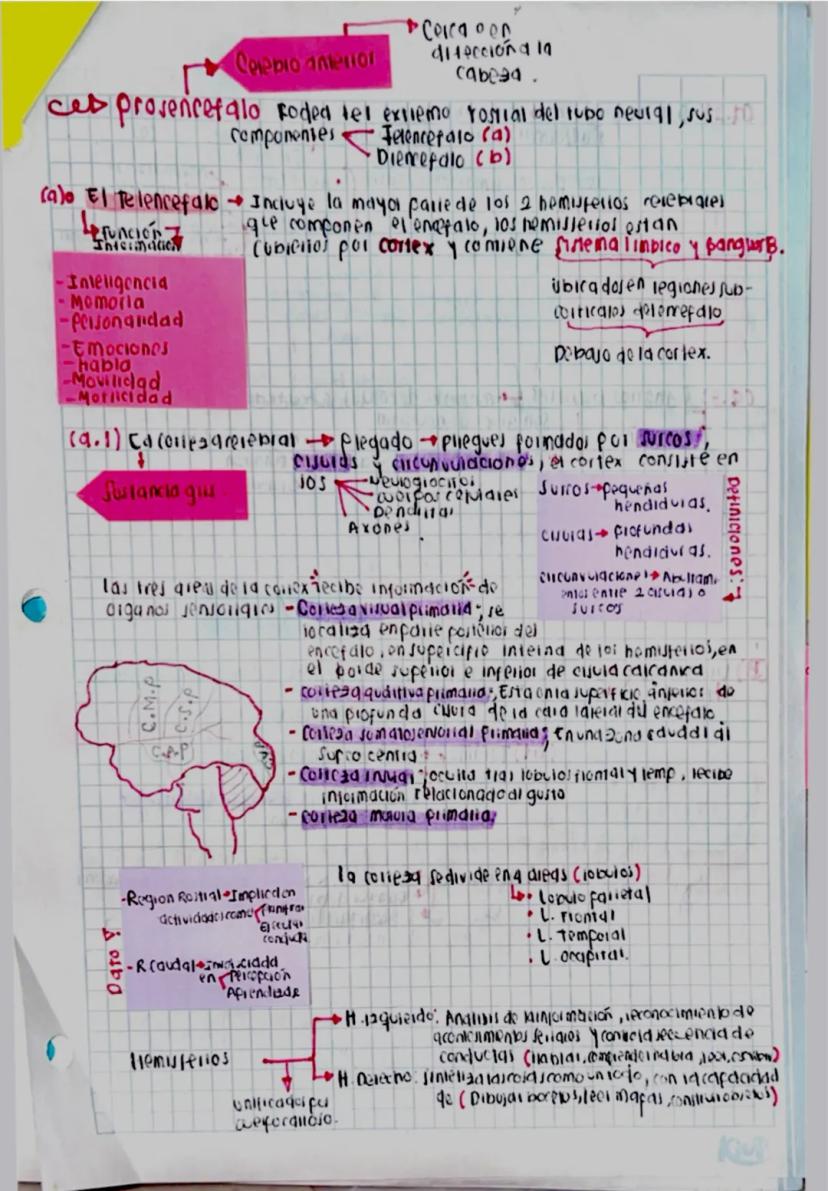 Cerca o en
dirección a la
cabeza.
Cerebro anterior
Prosencefalo Rodea del extremo rostral del tubo neural, sus
componentes Telencefalo (a)
Diencefalo (b)
(a) El Telencefalo → Incluye la mayor parte de los 2 hemisferios cerebrales
que componen el encefalo, los hemisferios estan
cubiertos por cortex y contiene sistema limbico y
Función
Información
- Inteligencia
- Memoria
- Personalidad
- Emociones
- Habla
- Movilidad
- Motricidad
ubicados en regiones sub-
corticales del encefalo
Debajo de la cortex.
(a.1) La corteza cerebral → Plegado → pliegues formados por surcos,
cisuras y circunvoluciones, el cortex consiste en
Sustancia gris
los Neurogliocitos
cuerpos celulares
Dendritas
Axones
Definiciones:
Surcos → pequeñas
hendiduras.
Cisuras → profundas
hendiduras.
circunvoluciones →
entre 2 cisuras o
surcos
Las tres areas de la cortex "recibe información" de
organos sensoriales - Corteza visual primaria; se
localiza en parte posterior del
encefalo, en superficie interna de los hemisferios, en
el borde superior e inferior de cisura calcarina
- corteza auditiva primaria; Esta en la superficie de
una profunda cisura de la cara lateral del encefalo
- Corteza somatosensorial primaria; En una zona caudal al
surco central
- Corteza insular; oculta tras lobulos frontal y temp, recibe
información relacionado al gusto
- corteza motora primaria;
C.M.P
C.S.P
la corteza se divide en 4 areas (lobulos)
• Lobulo parietal
• L. Frontal
• L. Temporal
• L. occipital.
Dato
- Region Rostral → Impliced en
actividades como
Ejecutar
conducta
- R Caudal →
en Percepción
Aprendizaje
Hemisferios
unificados por
cuerpo calloso.
H. Izquierdo: Análisis de la información, reconocimiento de
acontecimientos seriados y controla secuencia de
conductas (hablar, leer,
H. Derecho: sintetiza las cosas como un todo, con la capacidad
de (Dibujar bocetos, leer mapas, construir objetos)
Kiut